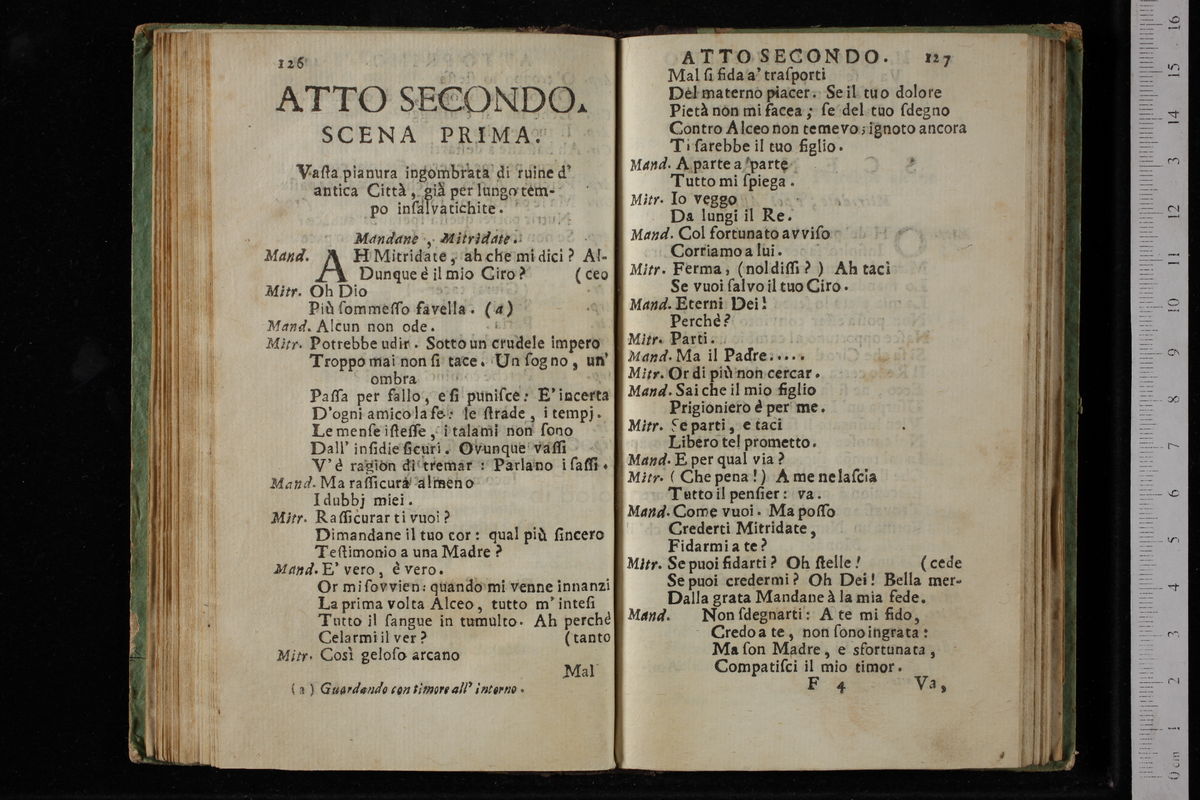 126
ATTO SECONDO.
SCENA PRIMA.
Vaſta pianura ingombrata di ruine d'
antica Città, già per lungo tem-
po inſalvatichite.
Mandane, Mitridate.
Mand. AH Mitridate, ah che mi dici? Al-
Dunque è il mio Ciro? (ceo
Mitr. Oh Dio
Più ſommeſſo favella. (a)
Mand. Alcun non ode.
Mitr. Potrebbe udir. Sotto un crudele impero
Troppo mai non ſi tace. Un ſogno, un'
ombra
Paſſa per fallo, e ſi puniſce: E' incerta
D'ogni amico la fe: le ſtrade, i tempj.
Le menſe iſteſſe, i talami non ſono
Dall' inſidie ſicuri. Ovunque vaſſi
V'è ragion di tremar: Parlano i ſaſſi.
Mand. Ma raſſicura almeno
I dubbj miei.
Mitr. Raſſicurar ti vuoi?
Dimandane il tuo cor: qual più ſincero
Teſtimonio a una Madre?
Mand. E' vero, è vero.
Or mi ſovvien: quando mi venne innanzi
La prima volta Alceo, tutto m' inteſi
Tutto il ſangue in tumulto. Ah perchè
Celarmi il ver? (tanto
Mitr. Così geloſo arcano
Mal
(a) Guardando con timore all' intorno.
ATTO SECONDO. 127
Mal ſi fida a' traſporti
Del materno piacer. Se il tuo dolore
Pietà non mi facea; ſe del tuo ſdegno
Contro Alceo non temevo; ignoto ancora
Ti ſarebbe il tuo figlio.
Mand. A parte a parte
Tutto mi ſpiega.
Mitr. Io veggo
Da lungi il Re.
Mand. Col fortunato avviſo
Corriamo a lui.
Mitr. Ferma, (nol diſſi?) Ah taci
Se vuoi ſalvo il tuo Ciro.
Mand. Eterni Dei!
Perchè?
Mitr. Parti.
Mand. Ma il Padre....
Mitr. Or di più non cercar.
Mand. Sai che il mio figlio
Prigioniero è per me.
Mitr. Se parti, e taci
Libero tel prometto.
Mand. E per qual via?
Mitr. (Che pena!) A me ne laſcia
Tutto il penſier: va.
Mand. Come vuoi. Ma poſſo
Crederti Mitridate,
Fidarmi a te?
Mitr. Se puoi fidarti? Oh ſtelle! (cede
Se puoi credermi? Oh Dei! Bella mer-
Dalla grata Mandane à la mia fede.
Mand. Non ſdegnarti: A te mi fido,
Credo a te, non ſono ingrata:
Ma ſon Madre, e sfortunata,
Compatiſci il mio timor.
F 4 Va,
0 cm 1 2 3 4 5 6 7 8 9 10 11 12 3 14 15 16